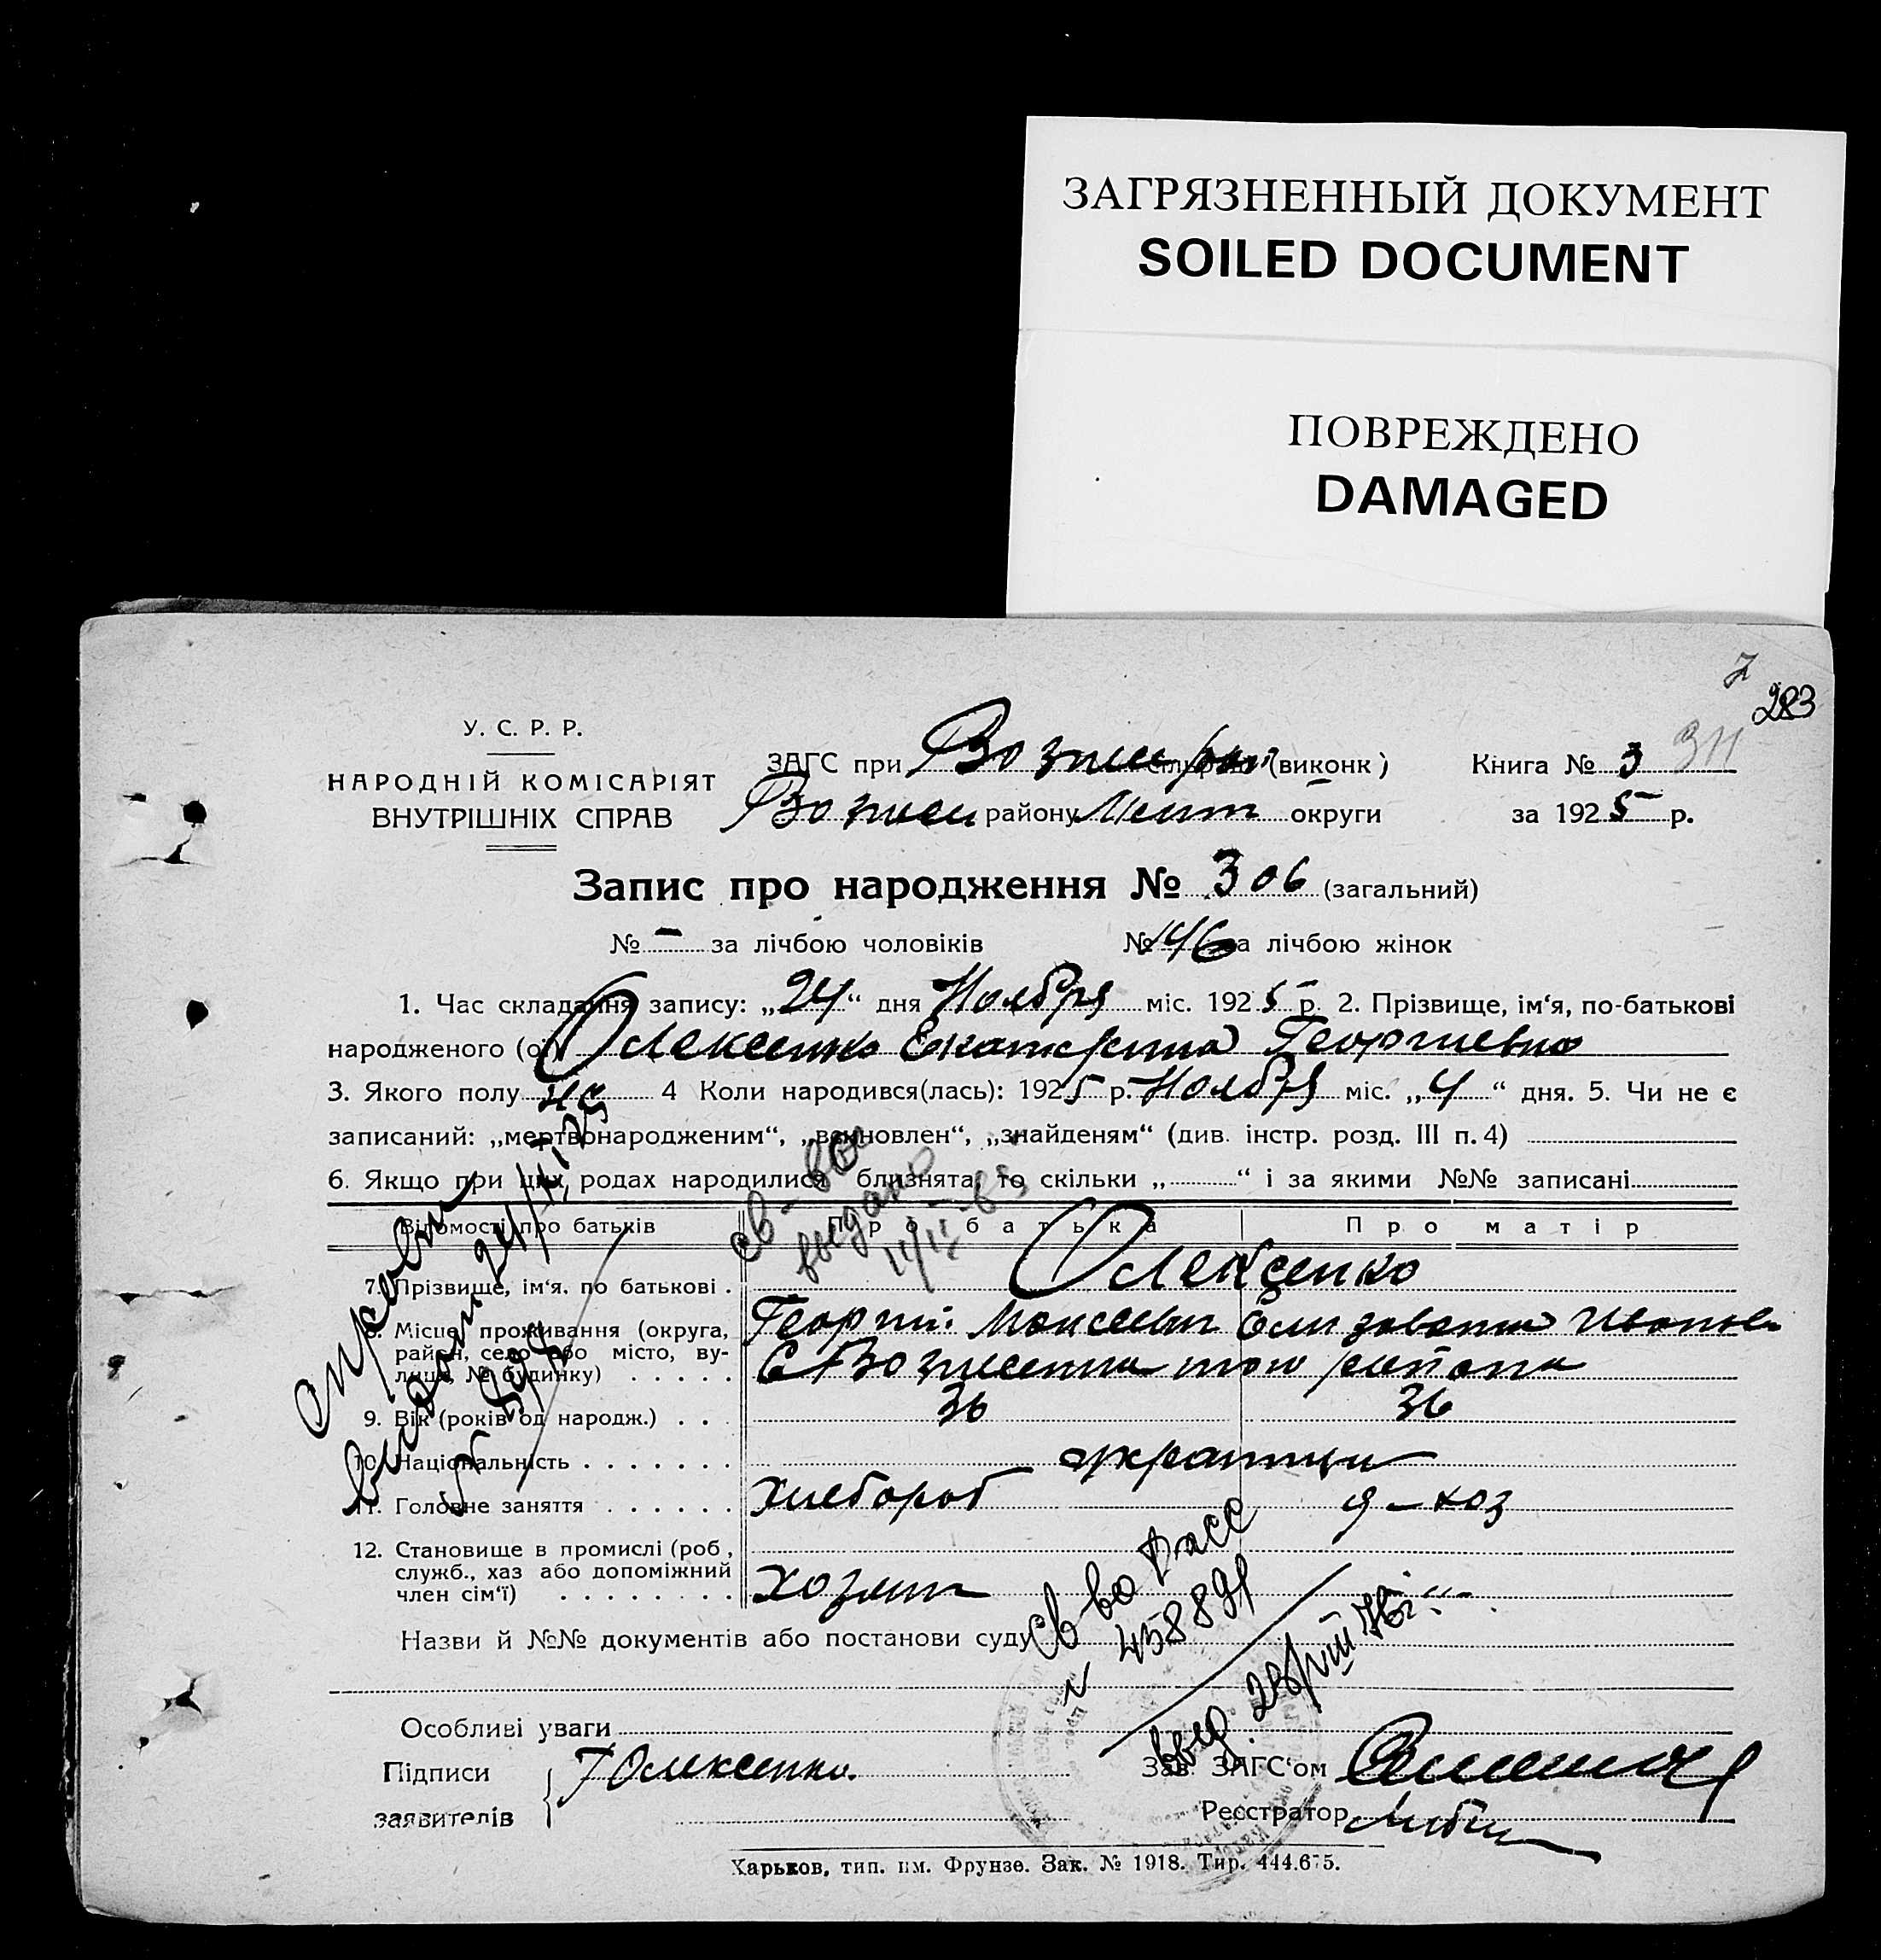 ЗАГРЯЗНЕННЫЙ ДОКУМЕНТ
SOILED DOCUMENT
ПОВРЕЖДЕНО
DAMAGED
283
311
У. С. Р. Р.
НАРОДНІЙ КОМІСАРІЯТ
ВНУТРІШНІХ СПРАВ
ЗАГС при (виконк)
Книга № 3
району округи
за 1925 р.
Запис про народження № 306 (загальний)
№ – за лічбою чоловіків № 146 за лічбою жінок
1. Час складання запису: „24“ дня Ноября міс. 1925 р. 2. Прізвище, ім‘я, по-батькові
народженого (ої) Олексенко Екатерина Георгиевна
3. Якого полу 4 Коли народився(лась): 1925 р. Ноября міс. „4“ дня. 5. Чи не є
записаний: „мертвонародженим“, „вкиновлен“, „знайденям“ (див. інстр. розд. III п. 4)
6. Якщо при цих родах народилися близнята, то скільки „ “ і за якими №№ записані
св-во
выдано
Відомості про батьків Про батька Про матір
7. Прізвище, ім‘я. по батькові . Олексенко
8. Місце проживання (округа,
район, село або місто, ву-
лиця, № будинку) . . . . .
Георгий Моисеевич Елизавета Иванов
9. Вік (років од народж.) . . . 36 36
10. Національність . . . . . . . украинцы
11. Головне заняття . . . . . . Хлебороб д-хоз
12. Становище в промислі (роб,
служб., хаз або допоміжний
член сім‘ї) . . . . . . . . Хозяин
Назви й №№ документів або постанови суду
св-во
№ 458891
Особливі уваги
Підписи
заявителів
Г Олексенко.
Зав. ЗАГС‘ом
Реєстратор
Харьков, тип. им. Фрунзе. Зак. № 1918. Тир. 444.675.